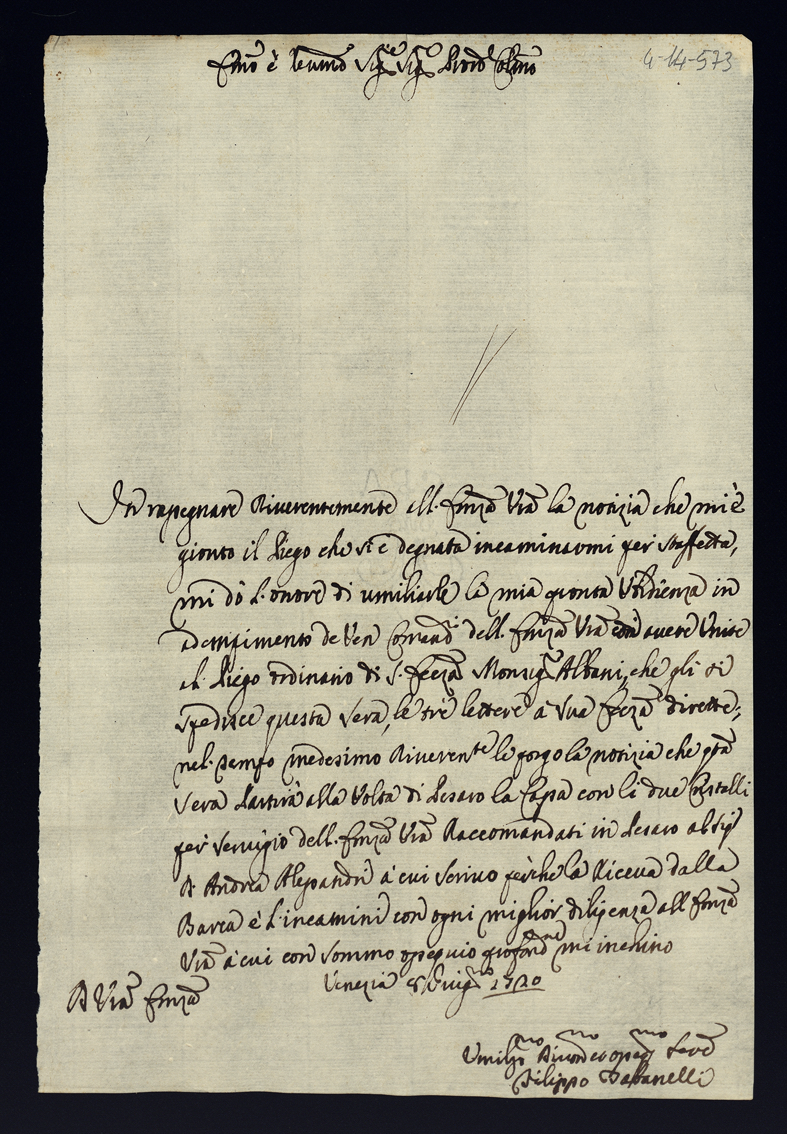 Em̃o è Reumõ Sig.re Sig.re Prõn Colmõ
4-14-573
In rassegnare Riuerentemente all. Em̃za Vrã la notizia che mi è
gionto il Piego che si è degnata incaminarmi per Staffetta,
mi dò l'onore di umiliarle la mia pronta Vbidienza in
adempimento de Ven Comand.i dell. Em̃za Vrã auere Unite
al Piego ordinario di S. Ecc.za Monsig.r Albani, che gli si
spedisce questa sera, le trè lettere à Sua Ecc.za dirette;
nel tempo medesimo Riuerent.e le porgo la notizia che q̃ta
sera Partirà alla Volta di Pesaro la Cassa con li due Cristalli
per Seruigio dell. Em̃za Vrã Raccomandati in Pesaro al Sig.r
D. Andrea Alessandri à cui scriuo perche la Riceua dalla
Barca è l'incamini con ogni miglior diligenza all Em̃za
Vrã à cui con sommo ossequio profond.me mi inchino
Venezia 8 Giug.no 1720
D Vrã Em̃za
Vmiliss.mo Diuot.mo ed osseq.mo Seru.e
Filippo